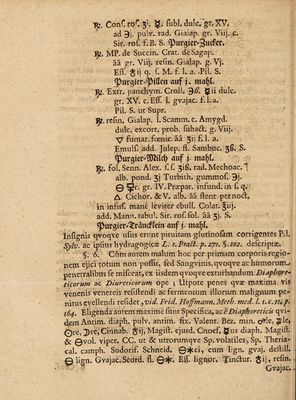 ℞. Conſ. roſ. ʒj. ☿. ſubl. dulc. gr. XV.
ad ℈j. pulv. rad. Gialap. gr. Viij. c.
Sir. roſ. f. B. S. Purgier-Zucker.
℞. MP. de Succin. Crat. de Sagap.
āā gr. Viij. reſin. Gialap. g. Vj.
Eſſ. q. ſ. M. f. l. a. Pil. S.
Purgier-Pillen auf j. mahl.
℞. Extr. panchym. Croll. ℈ß. ☿ii dulc.
gr. XV. c. Eſſ. l. gvajac. f. l. a.
Pil. S. ut Supr.
℞. reſin. Gialap. l. Scamm. c. Amygd.
dulc. excort. prob. ſubact. g. Viij.
🜄 fumar. fœnic. āā ʒj. f. l. a.
Emulſ. add. Julep. fl. Sambuc. ʒß. S.
Purgier-Milch auf j. mahl.
℞. fol. Senn. Alex. ſ. ſ. ʒiß. rad. Mechoac.
alb. pond. ʒj Turbith. gummoſ. ℈j.
gr. IV. Præpar. infund. in ſ. q.
Cichor. & V. alb. āā ſtent pernoct.
in infuſ. mane leviter ebull. Colat. ʒij.
add. Mann. tabul. Sir. roſ. ſol. āā ʒj. S.
Purgier-Tränklein auf j. mahl.
Inſignis qvoqve uſus erunt pituitam glutinoſam corrigentes P. l.
Sylv. ac ipſius hydragogica L. 1. Pract. p. 271. §. 102. deſcriptæ.
§. 6. Cùm autem malum hoc per primam corporis regio-
nem ejici totum non poſſit, ſed Sangvinis, qvoqve ac humorum
penetralibus ſe miſceat, ex iisdem qvoqve exturbandum Diaphore-
ticorum ac Diureticorum ope; Utpote penes qvæ maxima vis
venenis venereis reſiſtendi ac fermentum illorum malignum pe-
nitus evellendi reſidet, vid. Frid. Hoffmann. Meth. med. l. 1. c. 11. p.
164. Eligenda autem maximè ſunt Specifica, ac è Diaphoreticis qvi-
dem Antim. diaph. pulv. antim. fix. Valent. Bez. min.
Cinnab. Magiſt. ejusd. Cnoef. diaph. Magiſt.
& vol. viper. CC. ut & utrorumqve Sp. volatiles, Sp. Theria-
cal. camph. Sudorif. Schneid. cum lign. gvaj. deſtill.
lign. Gvajac. Scord. fl. Eſſ. lignor. Tinctur. reſin.
Gvajac.